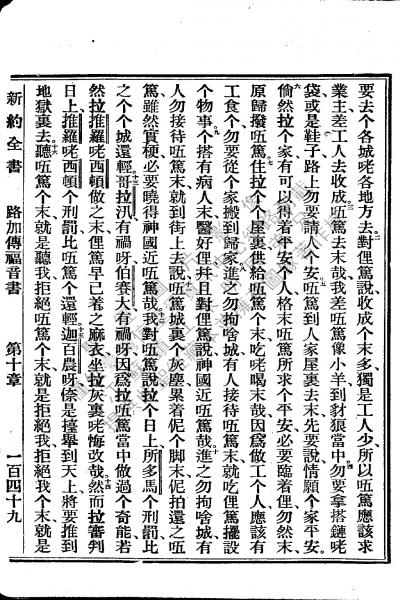 要去个各城咾各地方去對俚篤說收成个末多獨是工人少所以㕶篤應該求
業主差工人去收成㕶篤去末哉我差㕶篤像小羊到豺狼當中勿要拿搭鏈咾
袋或是鞋子路上勿要請人个安㕶篤到人家屋裏去末先要說情願个家平安
倘然拉个家有可以得着平安个人格末㕶篤所求个平安必要臨着俚勿然末
原歸撥㕶篤住拉个个屋裏供給㕶篤个末吃咾喝末哉因爲做工个人應該有
工食个勿要從个家搬到歸家進之勿拘啥城有人接待㕶篤末就吃俚篤擺設
个物事个搭有病人末醫好俚幷且對俚篤說神國近㕶篤哉進之勿拘啥城有
人勿接待㕶篤末就到街上去說㕶篤城裏个灰塵累着伲个脚末伲拍還之㕶
篤雖然實梗必要曉得神國近㕶篤哉我對㕶篤說拉个日上所多馬个刑罰比
之个个城還輕哥拉汛有禍呀伯賽大有禍呀因爲拉㕶篤當中做過个奇能若
然拉推羅咾西頓做之末俚篤早已着之麻衣坐拉灰裏咾悔改哉然而拉審判
日上推羅咾西頓个刑罰比㕶篤个還輕迦百農呀倷是擡舉到天上將要推到
地獄裏去聽㕶篤个末就是聽我拒絕㕶篤个末就是拒絕我拒絕我个末就是
新約全書 路加傳福音書 第十章 一百四十九